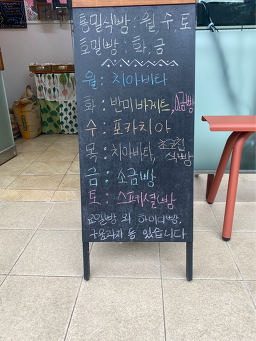 통밀식빵 : 월, 수, 토
토밀빵 : 화, 금
월 : 치아바타
화 : 반미바게트, 소금빵
수 : 포카치아
목 : 치아바타, 초코칩 식빵
금 : 소금빵
토 : 스페셜빵
고밀빵 외 하이디빵,
구움과자 등 있습니다